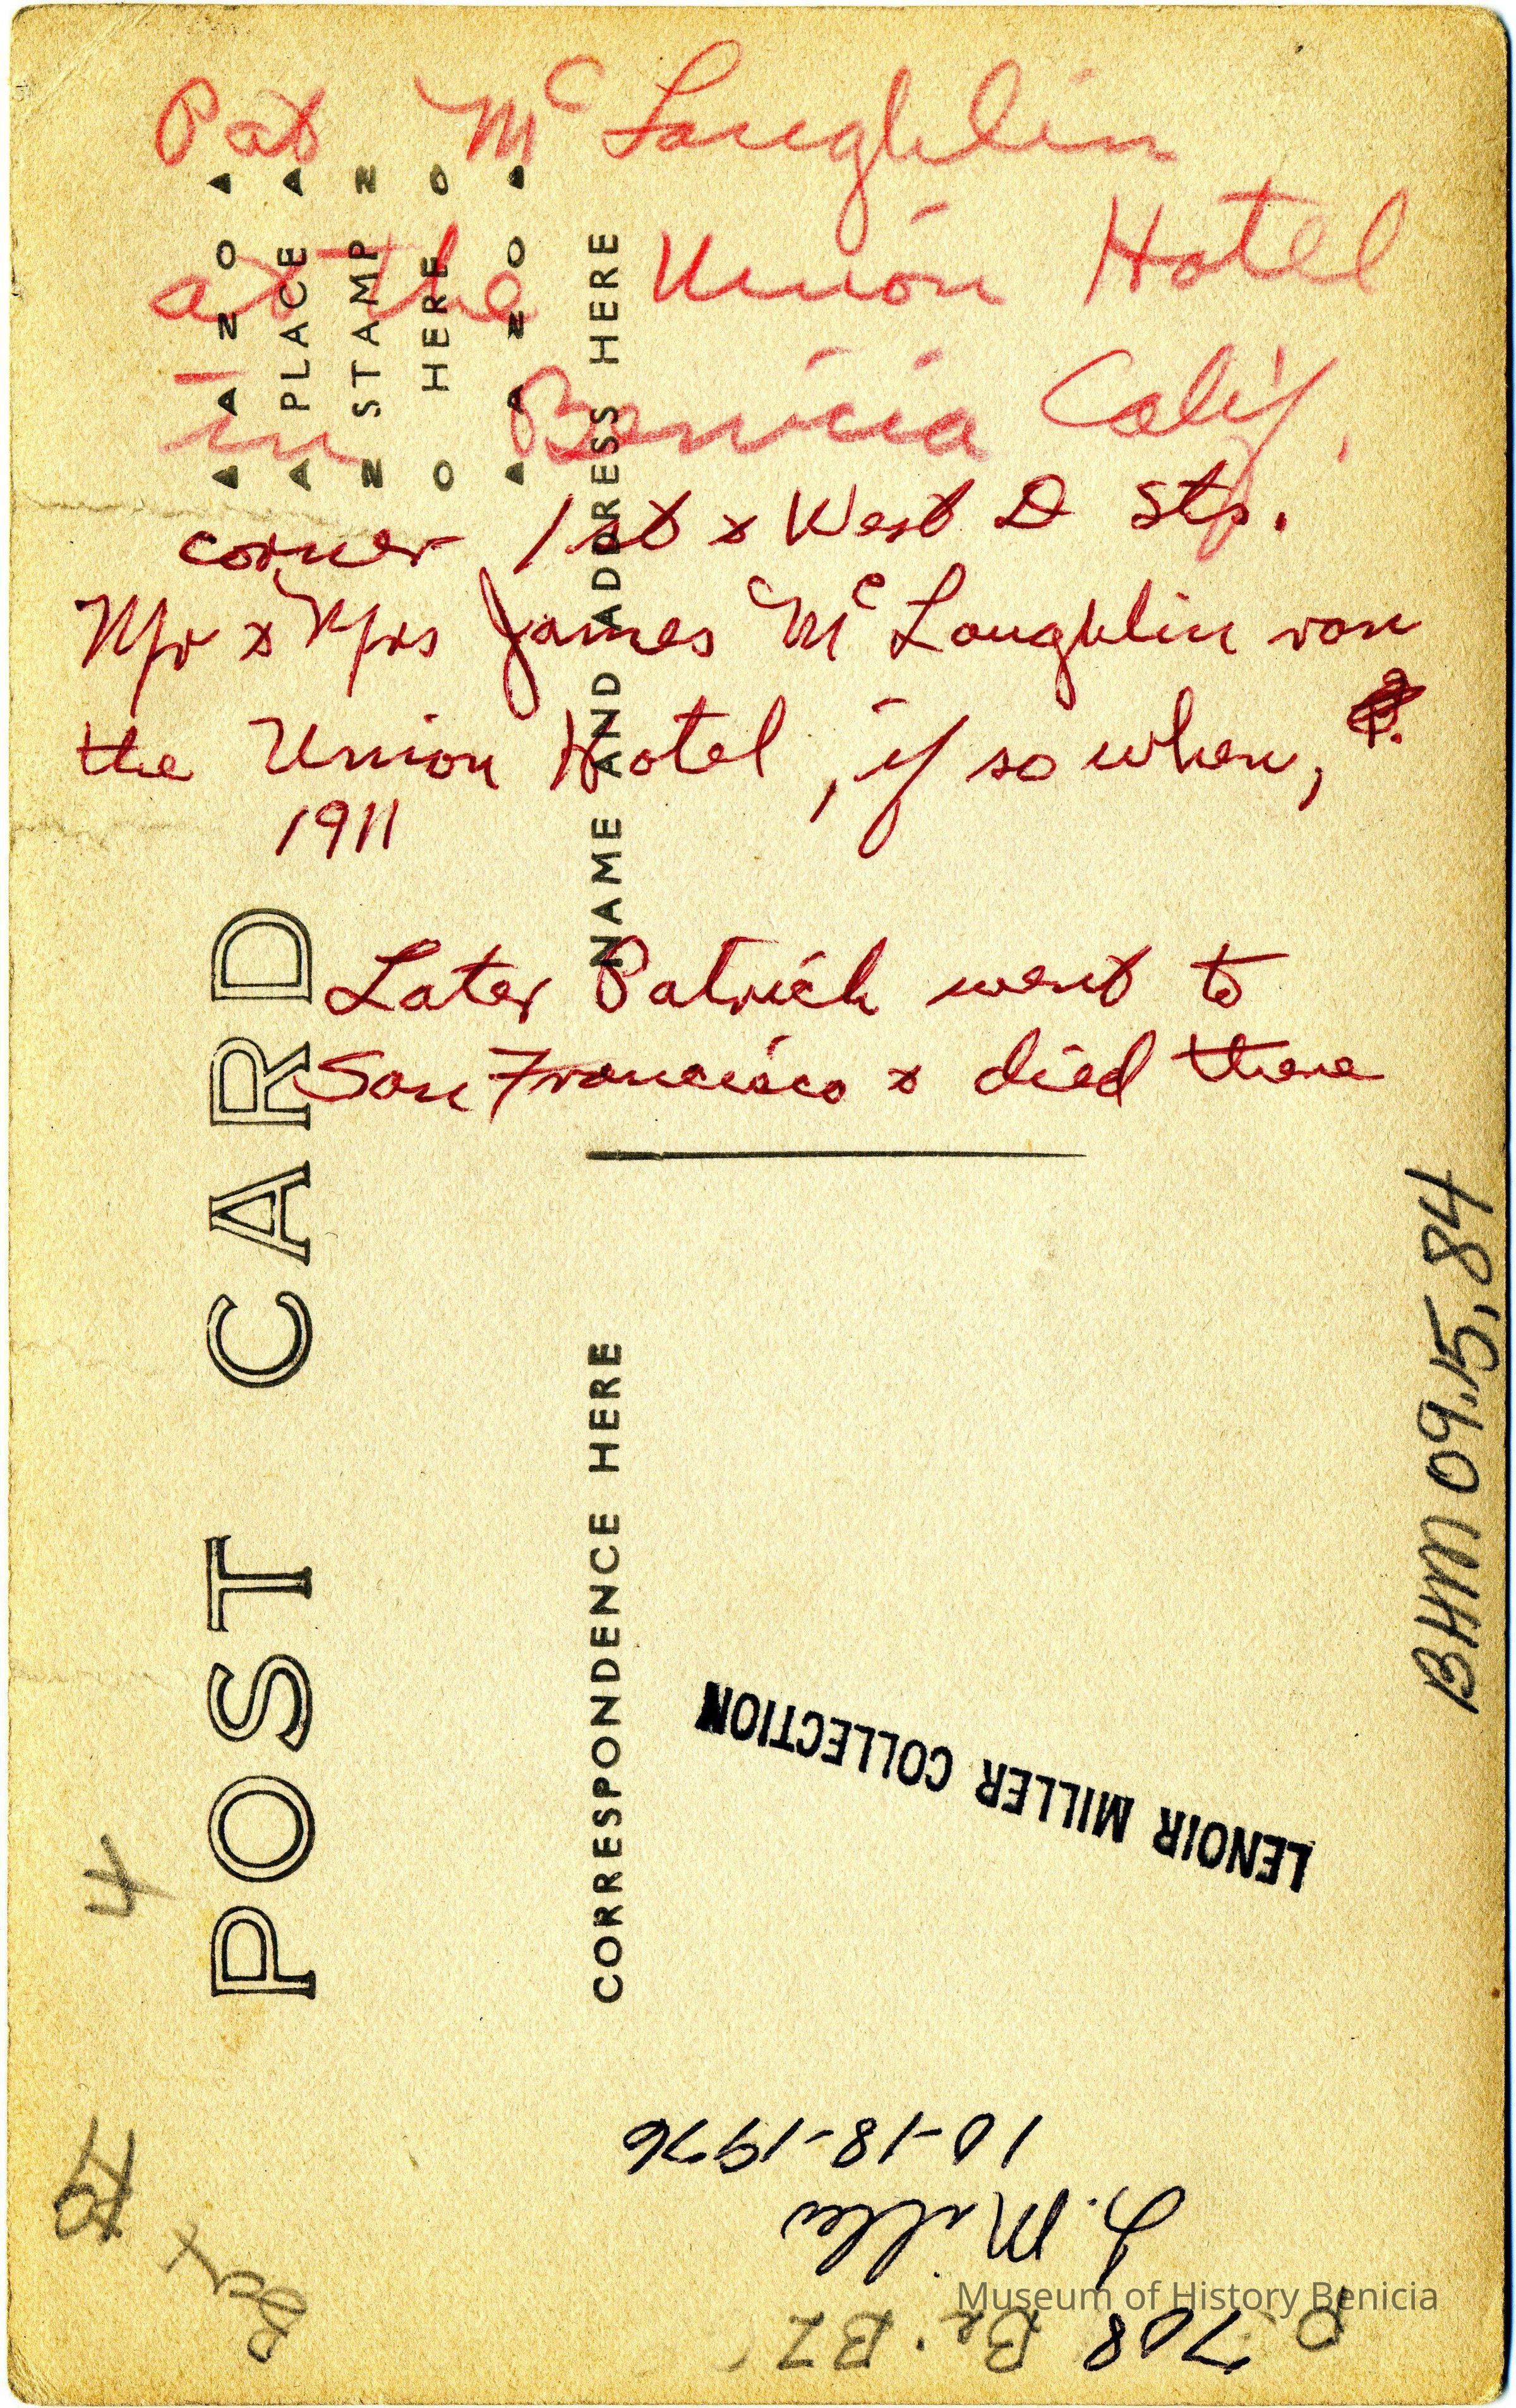 Pat McLaughlin
at the Union Hotel
in Benicia Calif.
corner 1st x West D Sts.
Mr x Mrs James McLaughlin ran
the Union Hotel, if so when,
1911
Later Patrick went to
San Francisco x died there
PLACE
STAMP
HERE
NAME AND ADDRESS HERE
POST CARD
CORRESPONDENCE HERE
BHM 09.15.84
LENOIR MILLER COLLECTION
4
10-18-1976
L. Miller
708
Museum of History Benicia